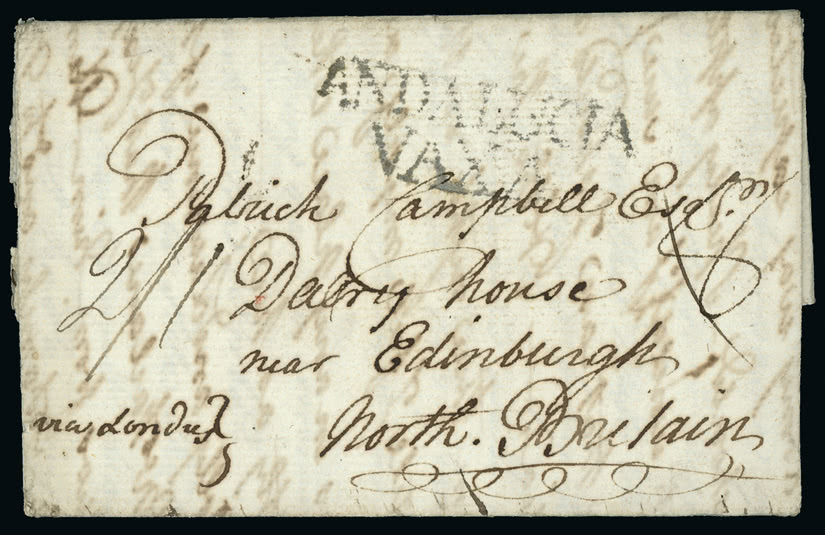 ANDALUCIA
VAXA
Patrick Campbell Esqr.
2/1 Dalry house
near Edinburgh
via London
North. Britain